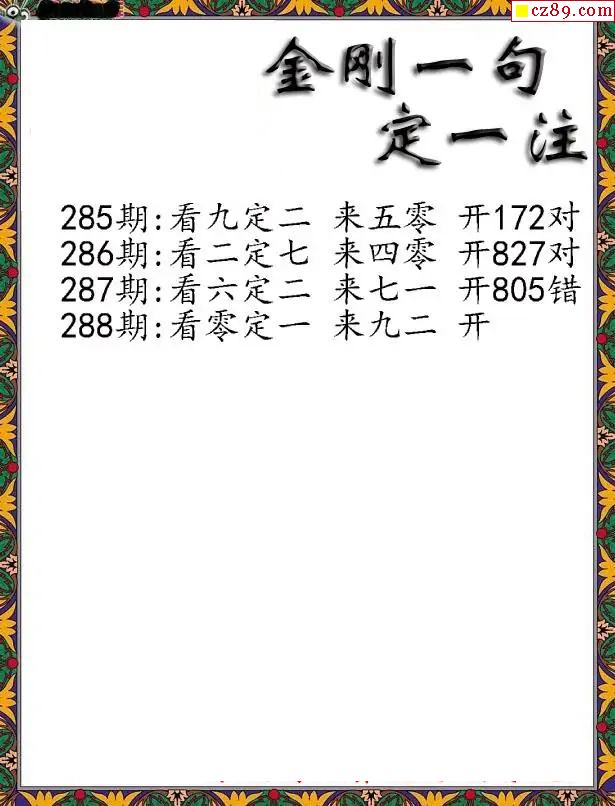 cz89.com
金刚一句
定一注
285期:看九定二 来五零 开172对
286期:看二定七 来四零 开827对
287期:看六定二 来七一 开805错
288期:看零定一 来九二 开